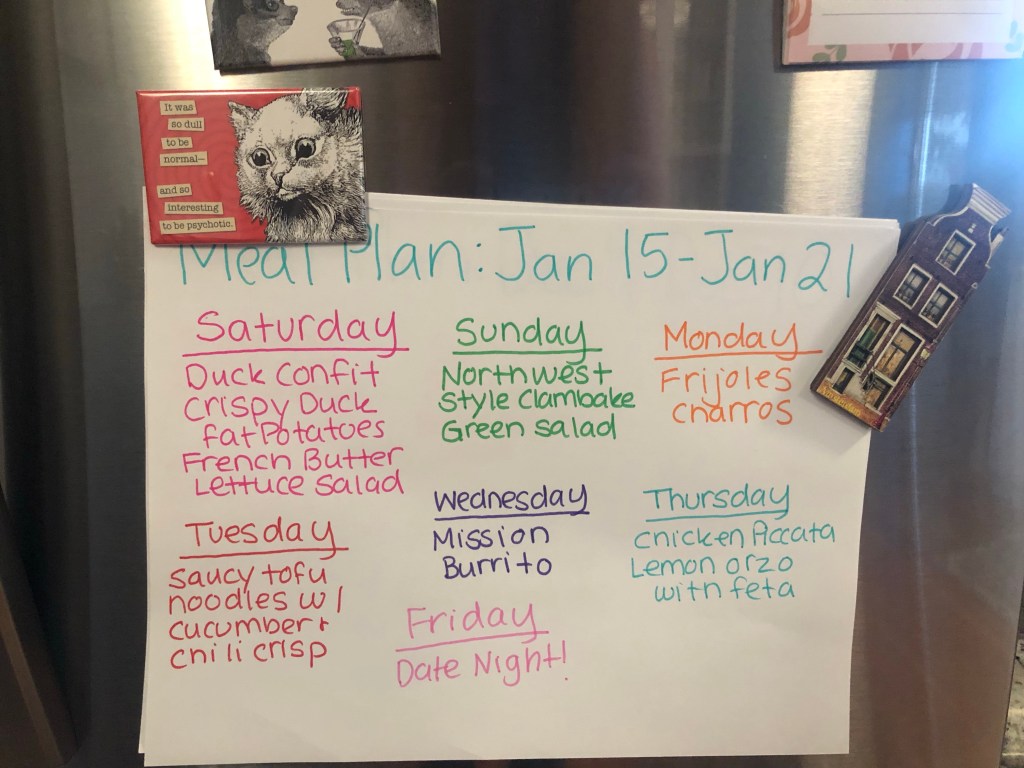 It was
so dull
to be
normal—
and so
interesting
to be psychotic.
Meal Plan: Jan 15-Jan 21
Saturday
Duck Confit
Crispy Duck
Fat Potatoes
French Butter
Lettuce Salad
Sunday
Northwest
Style Clambake
Green Salad
Monday
Frijoles
charros
Tuesday
Saucy tofu
noodles w/
cucumber +
chili crisp
Wednesday
Mission
Burrito
Thursday
Chicken Piccata
Lemon orzo
with feta
Friday
Date Night!